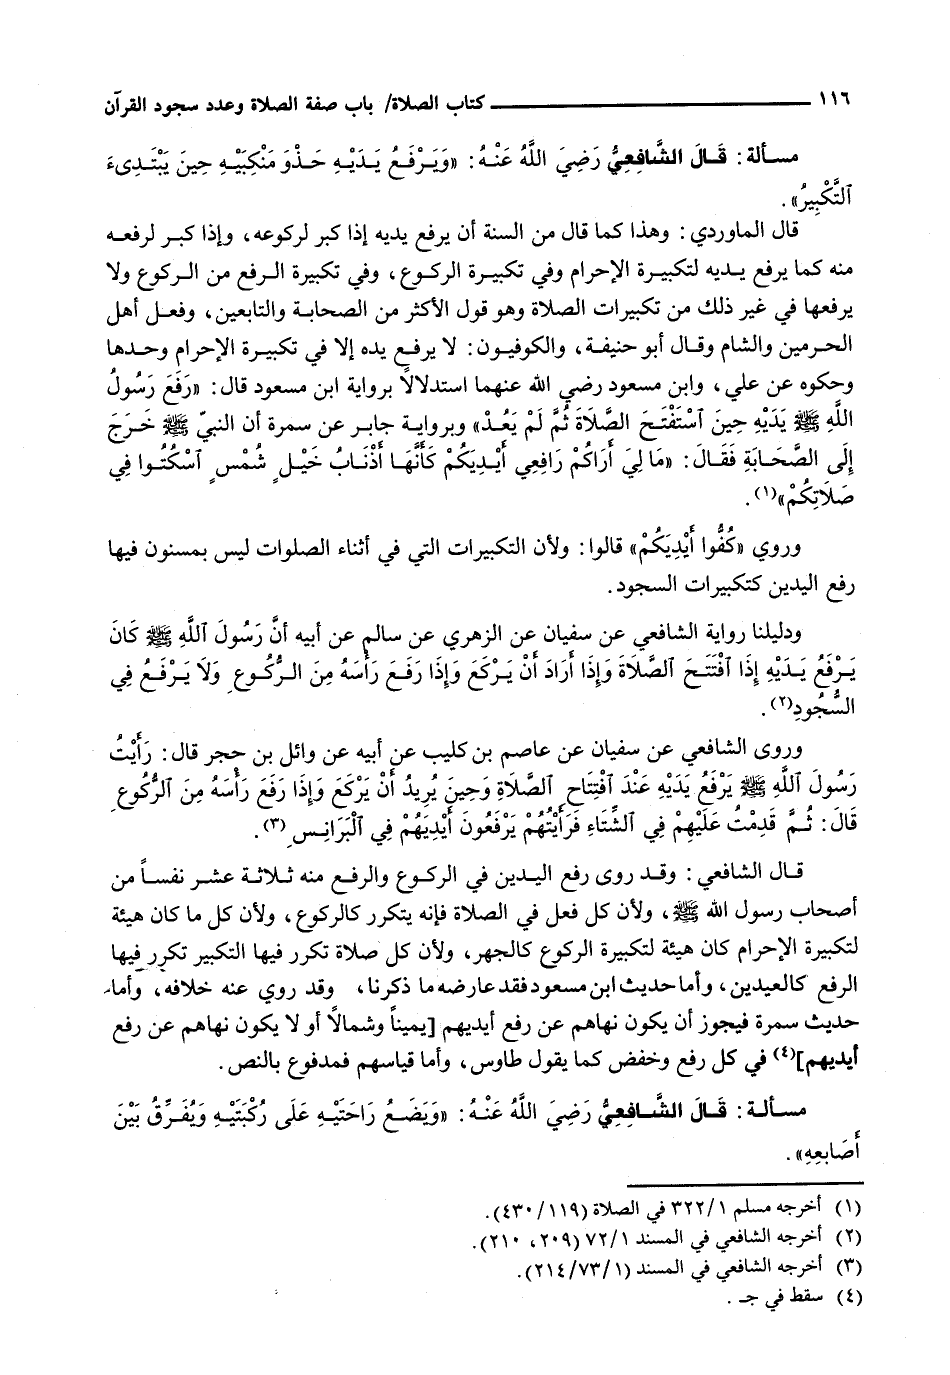 ١١٦ ــــــــــــــــــــ كتاب الصلاة/ باب صفة الصلاة وعدد سجود القرآن
مسألة: قَالَ الشَّافِعِيُّ رَضِيَ اللَّهُ عَنْهُ: «وَيَرْفَعُ يَدَيْهِ حَذْوَ مَنْكِبَيْهِ حِينَ يَبْتَدِىءَ
ٱلتَّكْبِيرُ».
قال الماوردي: وهذا كما قال من السنة أن يرفع يديه إذا كبر لركوعه، وإذا كبر لرفعه
منه كما يرفع يديه لتكبيرة الإحرام وفي تكبيرة الركوع، وفي تكبيرة الرفع من الركوع ولا
يرفعها في غير ذلك من تكبيرات الصلاة وهو قول الأكثر من الصحابة والتابعين، وفعل أهل
الحرمين والشام وقال أبو حنيفة، والكوفيون: لا يرفع يده إلا في تكبيرة الإحرام وحدها
وحكوه عن علي، وابن مسعود رضي الله عنهما استدلالاً برواية ابن مسعود قال: «رَفَعَ رَسُولُ
اللَّهِ ﷺ يَدَيْهِ حِينَ ٱسْتَفْتَحَ الصَّلَاةَ ثُمَّ لَمْ يَعُدْ» وبرواية جابر عن سمرة أن النبيّ ﷺ خَرَجَ
إِلَى الصَّحَابَةِ فَقَالَ: «مَا لِيَ أَرَاكُمْ رَافِعِي أَيْدِيكُمْ كَأَنَّهَا أَذْنَابُ خَيْلٍ شُمْسٍ ٱسْكُنُوا فِي
صَلَاتِكُمْ»(١).
وروي «كُفُّوا أَيْدِيَكُمْ» قالوا: ولأن التكبيرات التي في أثناء الصلوات ليس بمسنون فيها
رفع اليدين كتكبيرات السجود.
ودليلنا رواية الشافعي عن سفيان عن الزهري عن سالم عن أبيه أنَّ رَسُولَ ٱللَّهِ ﷺ كَانَ
يَرْفَعُ يَدَيْهِ إِذَا ٱفْتَتَحَ ٱلصَّلَاةَ وَإِذَا أَرَادَ أَنْ يَرْكَعَ وَإِذَا رَفَعَ رَأْسَهُ مِنَ الرُّكُوعِ وَلَا يَرْفَعُ فِي
السُّجُودِ(٢).
وروى الشافعي عن سفيان عن عاصم بن كليب عن أبيه عن وائل بن حجر قال: رَأَيْتُ
رَسُولَ ٱللَّهِ ﷺ يَرْفَعُ يَدَيْهِ عَنْدَ ٱفْتِتَاحِ ٱلصَّلَاةِ وَحِينَ يُرِيدُ أَنْ يَرْكَعَ وَإِذَا رَفَعَ رَأْسَهُ مِنَ ٱلرُّكُوعِ
قَالَ: ثُمَّ قَدِمْتُ عَلَيْهِمْ فِي الشِّتَاءِ فَرَأَيْتُهُمْ يَرْفَعُونَ أَيْدِيَهُمْ فِي ٱلْبَرَانِسِ(٣).
قال الشافعي: وقد روى رفع اليدين في الركوع والرفع منه ثلاثة عشر نفساً من
أصحاب رسول الله ﷺ، ولأن كل فعل في الصلاة فإنه يتكرر كالركوع، ولأن كل ما كان هيئة
لتكبيرة الإحرام كان هيئة لتكبيرة الركوع كالجهر، ولأن كل صلاة تكرر فيها التكبير تكرر فيها
الرفع كالعيدين، وأما حديث ابن مسعود فقد عارضه ما ذكرنا، وقد روي عنه خلافه، وأما
حديث سمرة فيجوز أن يكون نهاهم عن رفع أيديهم [يميناً وشمالاً أو لا يكون نهاهم عن رفع
أيديهم](٤) في كل رفع وخفض كما يقول طاوس، وأما قياسهم فمدفوع بالنص.
مسألة: قَالَ الشَّافِعِيُّ رَضِيَ اللَّهُ عَنْهُ: «وَيَضَعُ رَاحَتَيْهِ عَلَى رُكْبَتَيْهِ وَيُفَرِّقُ بَيْنَ
أَصَابِعِهِ».
(١) أخرجه مسلم ٣٢٢/١ في الصلاة (٤٣٠/١١٩).
(٢) أخرجه الشافعي في المسند ٧٢/١ (٢٠٩، ٢١٠).
(٣) أخرجه الشافعي في المسند (٢١٤/٧٣/١).
(٤) سقط في جـ.